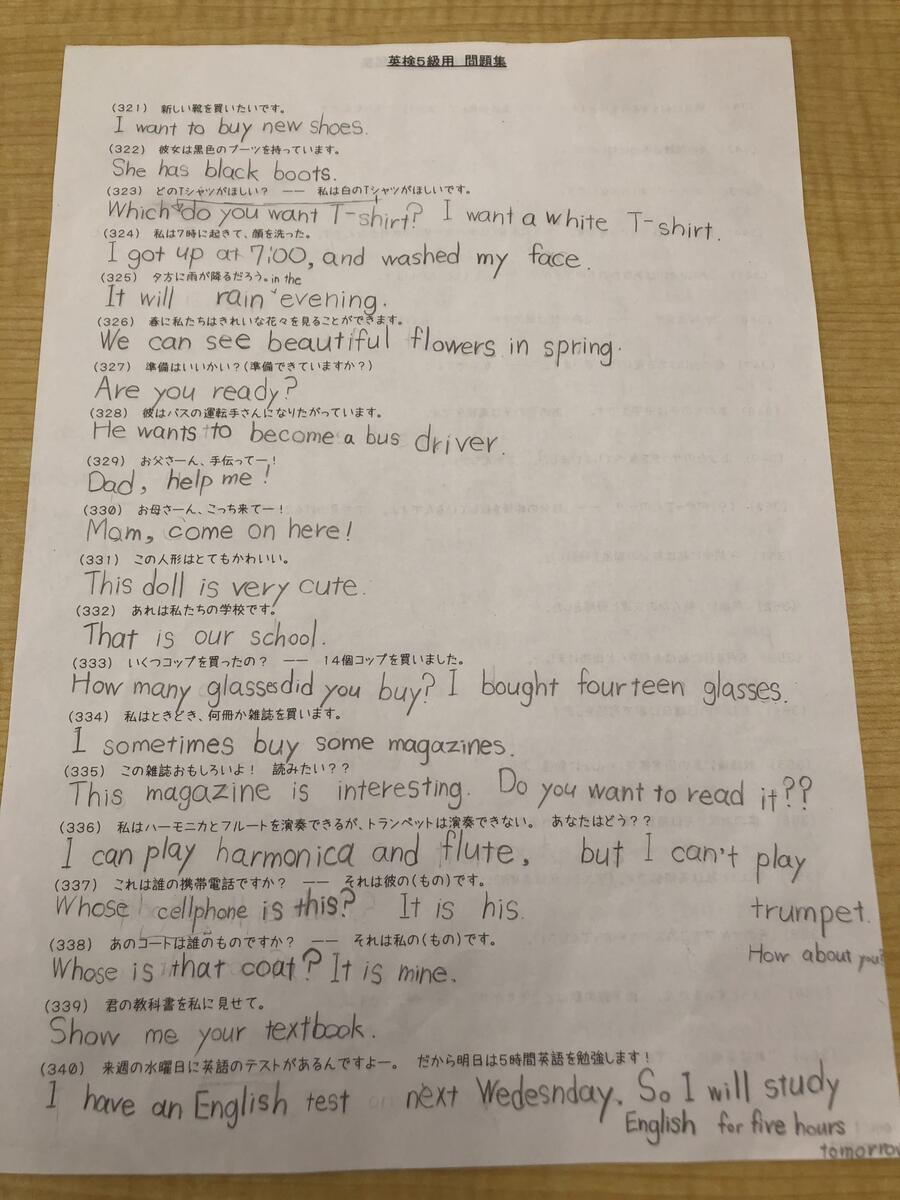 英検5級用 問題集
(321) 新しい靴を買いたいです。
I want to buy new shoes.
(322) 彼女は黒色のブーツを持っています。
She has black boots.
(323) どのTシャツがほしい? ―― 私は白のTシャツがほしいです。
Which do you want T-shirt? I want a white T-shirt.
(324) 私は7時に起きて、顔を洗った。
I got up at 7:00, and washed my face.
(325) 夕方に雨が降るだろう。 in the
It will rain evening.
(326) 春に私たちはきれいな花々を見ることができます。
We can see beautiful flowers in spring.
(327) 準備はいいかい?(準備できていますか?)
Are you ready?
(328) 彼はバスの運転手さんになりたがっています。
He wants to become a bus driver.
(329) お父さーん、手伝ってー!
Dad, help me!
(330) お母さーん、こっち来てー!
Mam, come on here!
(331) この人形はとてもかわいい。
This doll is very cute.
(332) あれは私たちの学校です。
That is our school.
(333) いくつコップを買ったの? ―― 14個コップを買いました。
How many glasses did you buy? I bought fourteen glasses.
(334) 私はときどき、何冊か雑誌を買います。
I sometimes buy some magazines.
(335) この雑誌おもしろいよ! 読みたい??
This magazine is interesting. Do you want to read it??
(336) 私はハーモニカとフルートを演奏できるが、トランペットは演奏できない。 あなたはどう??
I can play harmonica and flute, but I can't play
trumpet.
How about you?
(337) これは誰の携帯電話ですか? ―― それは彼の(もの)です。
Whose cellphone is this? It is his.
(338) あのコートは誰のものですか? ―― それは私の(もの)です。
Whose is that coat? It is mine.
(339) 君の教科書を私に見せて。
Show me your textbook.
(340) 来週の水曜日に英語のテストがあるんですよー。 だから明日は5時間英語を勉強します!
I have an English test next Wedesnday. So I will study
English for five hours
tomorrow